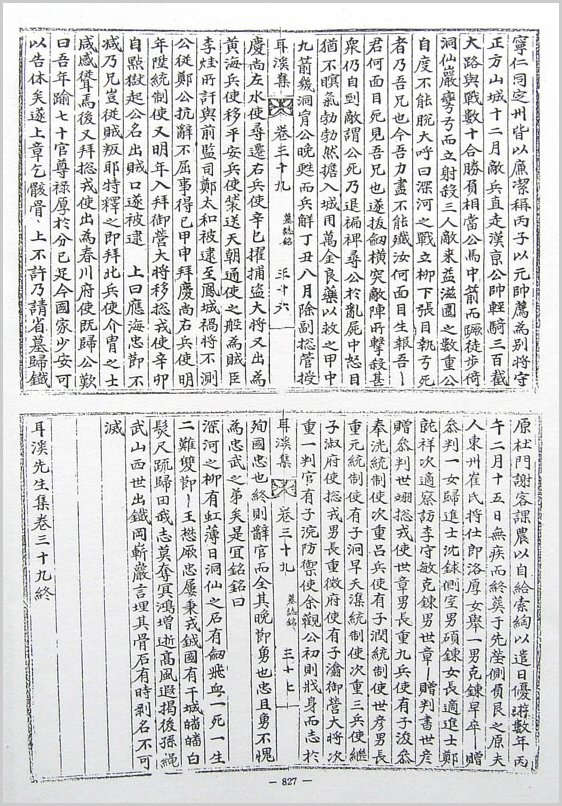 寧仁同定州皆以廉潔稱丙子以元帥薦為別將守
正方山城十二月敵兵直走漢京公帥輕騎三百截
大路與戰數十合勝負相當公馬中箭而蹶徒步倚
洞仙巖彎弓而立射殺三人敵來益滋圍之數重公
自度不能脫大呼曰深河之戰立柳下張目執弓死
者乃吾兄也今吾力盡不能殲汝何面目生報吾
君何面目死見吾兄也遂拔劒橫突敵陣所擊殺甚
衆仍自刎敵謂公死乃退褊裨尋公於亂屍中怒目
猶不瞑氣勃勃然擔入城用萬金良藥以救之甲中
九箭幾洞胷公晚甦而兵觧丁丑八月除副摠管授
耳溪集 卷三十九 墓誌銘 三十六
慶尚左水使尋遷右兵使辛巳擢捕盜大將又出為
黃海兵使移平安兵使裝送天朝通使之舡為賊臣
李烓所訐與前監司鄭太和被逮至鳳城禍將不測
公從鄭公抗辭不屈事得已甲申拜慶尚右兵使明
年陞統制使又明年入拜御營大將移摠戎使辛卯
自點獄起公名出賊口遂被逮 上曰應海忠節不
減乃兄豈從賊叛耶特釋之即拜北兵使介冑之士
咸感聳焉後又拜摠戎使出為春川府使既歸公歎
曰吾年踰七十官尊祿厚於分已足今國家少安可
以告休矣遂上章乞骸骨 上不許乃請省墓歸鐵
原杜門謝客課農以自給索綯以遣日優游數年丙
午二月十五日無疾而終葬于先塋側負艮之原夫
人東州崔氏將仕郎洛厚女舉一男克鍊早卒 贈
參判一女歸進士沈銶側室男碩鍊女長適進士鄭
祥次適察訪李守敏克鍊男世章 贈判書世彥
贈參判世翊摠戎使世章男長重九兵使有子浚泰
奉洸統制使次重呂兵使有子潤統制使世彥男長
重元統制使有子泂早夭濈統制使次重三兵使繼
子淑府使摠戎男長重徵府使有子瀹御營大將次
重一判官有子浣防禦使余觀公初則戕身而志於
耳溪集 卷三十九 墓誌銘 三十七
殉國忠也終則辭官而全其晚節勇也忠且勇不愧
為忠武之弟矣是宜銘銘曰
深河之柳有虹薄日洞仙之石有劒飛血一死一生
二難雙節 王懋厥忠屢秉戎鉞國有干城皤皤白
髮尺疏歸田我志莫奪冥鴻增逝高風遐揭後孫繩
武山西世出鐵岡嶄巖言埋其骨石有時剝名不可
滅
耳溪先生集卷三十九終
— 827 —